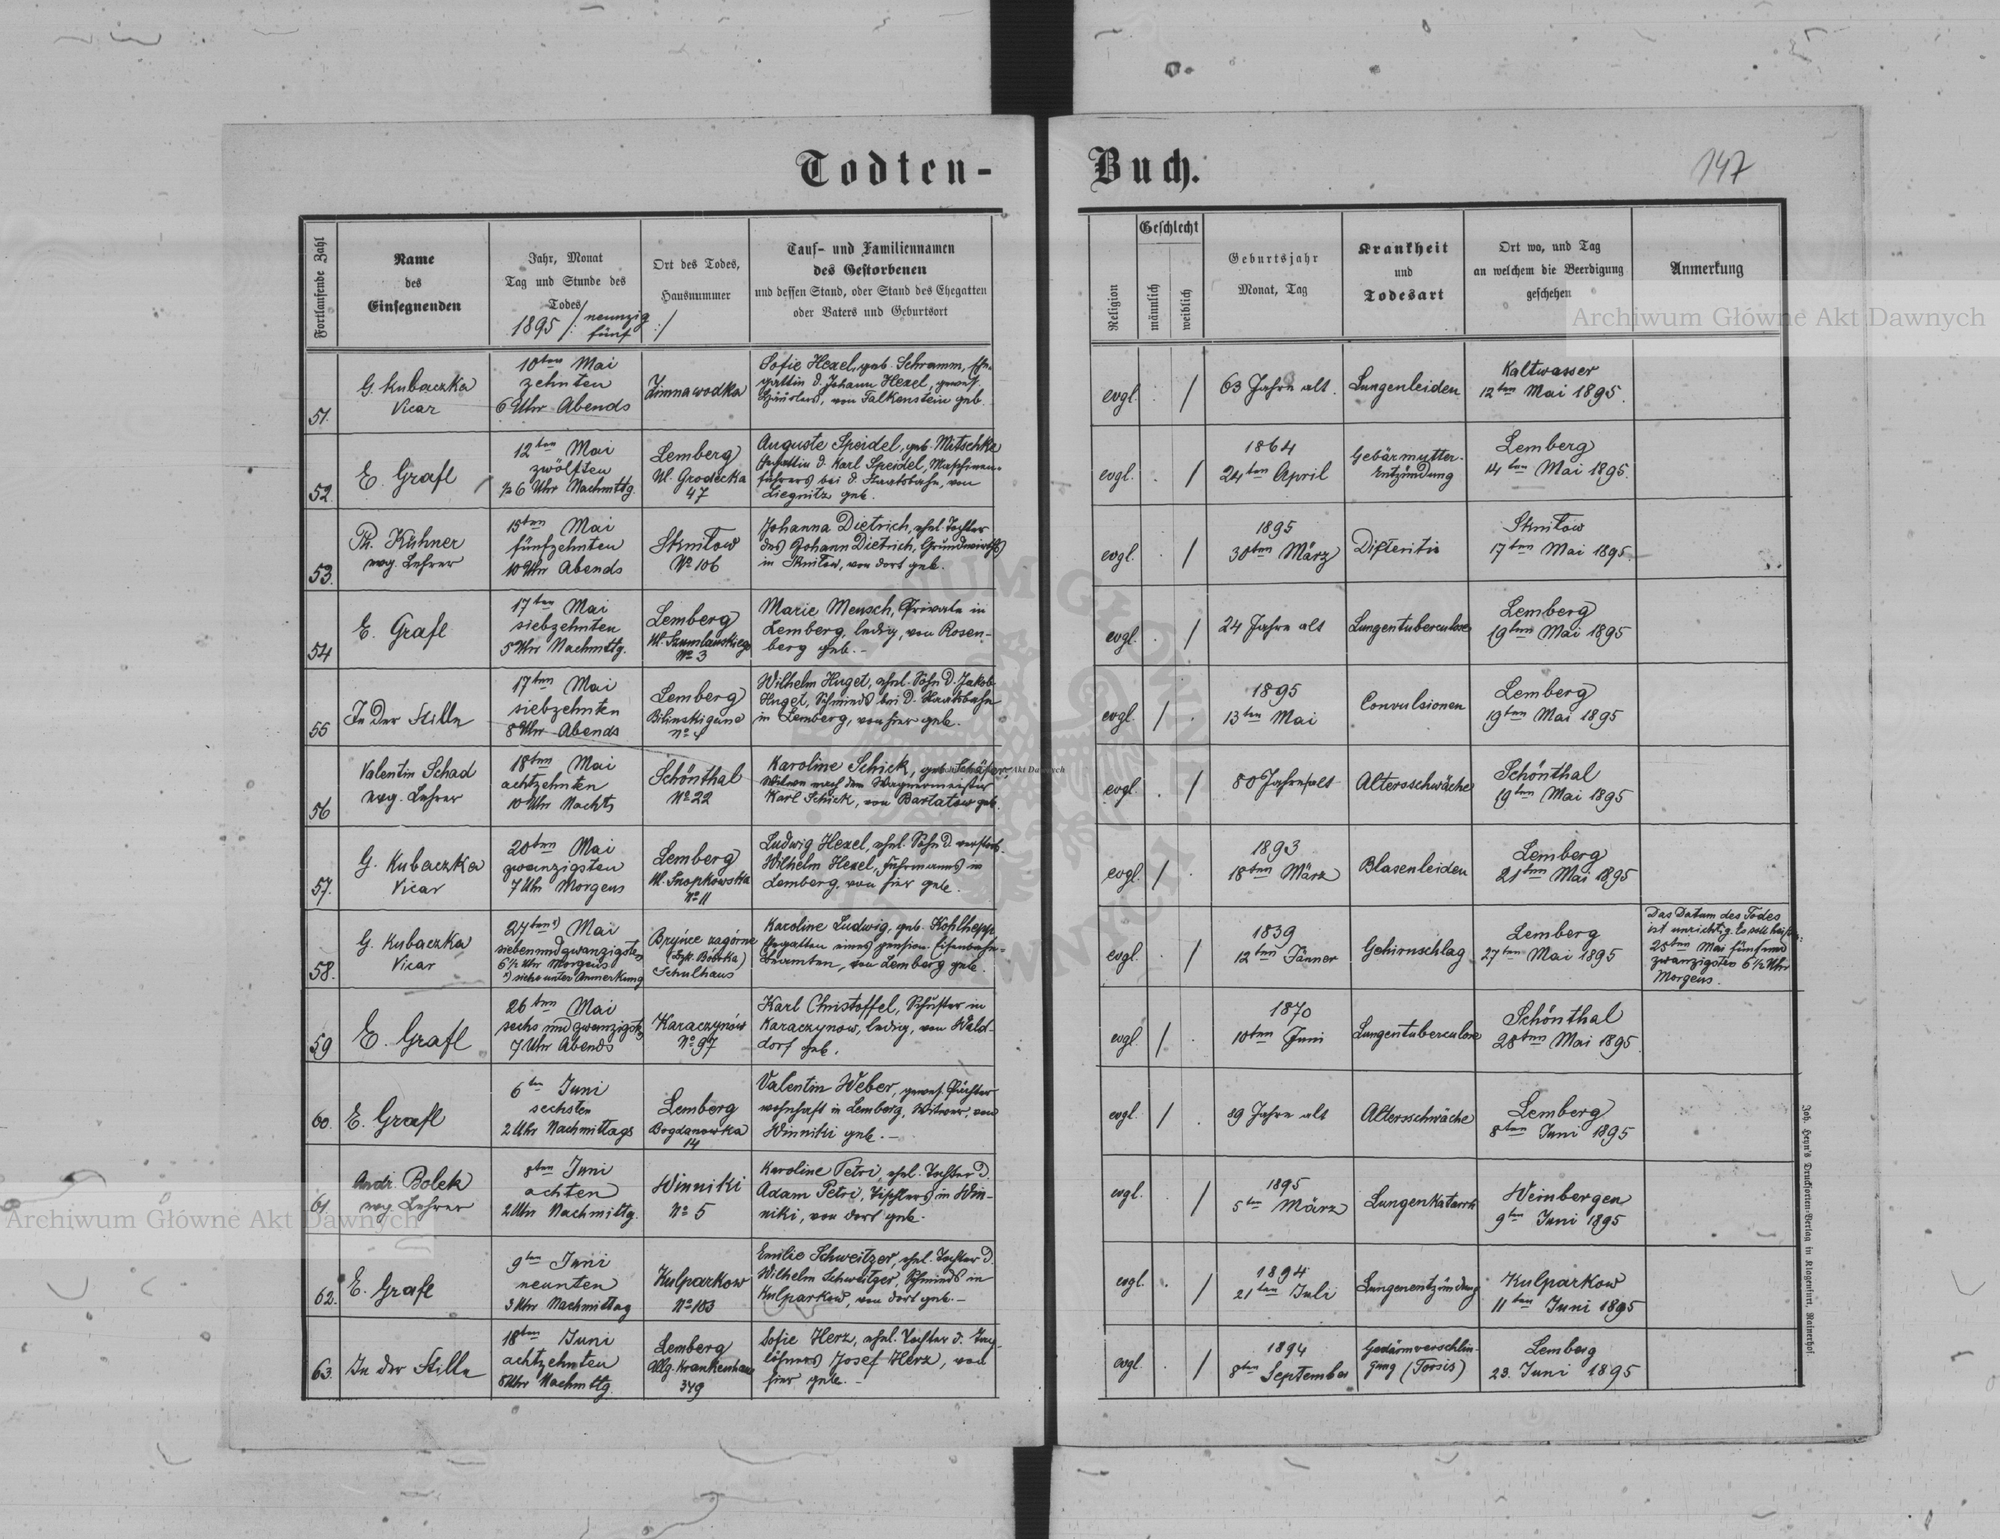 Todten-
Buch.
147
Fortlaufende Zahl
Name
des
Einsegnenden
Jahr, Monat
Tag und Stunde des
Todes
1895 /: neunzig
fünf :/
Ort des Todes,
Hausnummer
Tauf- und Familiennamen
des Gestorbenen
und dessen Stand, oder Stand des Ehegatten
oder Vaters und Geburtsort
Religion
Geschlecht
männlich
weiblich
Geburtsjahr
Monat, Tag
Krankheit
und
Todesart
Ort wo, und Tag
an welchem die Beerdigung
geschehen
Anmerkung
51.
G. Kubaczka
Vicar
10ten Mai
zehnten
6 Uhr Abends
Zimnawodka
Sofie Hexel, geb. Schramm, Ehe-
gattin d. Johann Hexel, gewes.
von Falkenstein geb.
evgl. . /
63 Jahre alt.
Lungenleiden
Kaltwasser
12ten Mai 1895.
52.
E. Grafl
12ten Mai
zwölften
1/2 6 Uhr Nachmttg.
Lemberg
Ul. Grodecka
47
Auguste Speidel, geb. Mitschke
Ehegattin d. Karl Speidel, Maschinen-
führers bei d. Staatsbahn, von
Liegnitz geb.
evgl. . /
1864
24ten April
Gebärmutter-
Entzündung
Lemberg
14ten Mai 1895.
53.
Ph. Kühner
evg. Lehrer
15ten Mai
fünfzehnten
10 Uhr Abends
Sknilow
No 106
Johanna Dietrich, ehel. Tochter
des Johann Dietrich, Grundwirths
in Sknilow, von dort geb.
evgl. . /
1895
30ten März
Difteritis
Sknilow
17ten Mai 1895
54
E. Grafl
17ten Mai
siebzehnten
5 Uhr Nachmttg.
Lemberg
Ul. Szumlanskiego
No 3
Marie Mensch, Private in
Lemberg, ledig, von Rosen-
berg geb. -
evgl. . /
24 Jahre alt
Lungentuberculose
Lemberg
19ten Mai 1895
55
In der Stille
17ten Mai
siebzehnten
8 Uhr Abends
Lemberg
Wilhelm Huget, ehel. Sohn d. Jakob
Huget, Schmieds bei d. Staatsbahn
in Lemberg, von hier geb.
evgl. / .
1895
13ten Mai
Convulsionen
Lemberg
19ten Mai 1895
56
Valentin Schad
evg. Lehrer
18ten Mai
achtzehnten
10 Uhr Nachts
Schönthal
No 22
Karoline Schick, geb. Schäfer,
Witwe nach dem Wagnermeister
Karl Schick, von Bartatow geb.
evgl. . /
80 Jahre alt
Altersschwäche
Schönthal
19ten Mai 1895
57.
G. Kubaczka
Vicar
20ten Mai
zwanzigsten
7 Uhr Morgens
Lemberg
Ul. Snopkowska
No 11
Ludwig Hexel, ehel. Sohn d. verstorb.
Wilhelm Hexel, Fuhrmanns in
Lemberg, von hier geb.
evgl. / .
1893
18ten März
Blasenleiden
Lemberg
21ten Mai 1895
58.
G. Kubaczka
Vicar
27ten *) Mai
siebenundzwanzigsten
6 1/2 Uhr Morgens
*) siehe unter Anmerkung
Bryńce zagórne
(Bzk. Bóbrka)
Schulhaus
Karoline Ludwig, geb. Kohlhepp,
Ehegattin eines pension. Eisenbahn-
beamten, von Lemberg geb.
evgl. . /
1839
12ten Jänner
Gehirnschlag
Lemberg
27ten Mai 1895
Das Datum des Todes
ist unrichtig. Es soll heißen:
25ten Mai fünfund
zwanzigsten 6 1/2 Uhr
Morgens.
59
E. Grafl
26ten Mai
sechs und zwanzigsten
7 Uhr Abends
Karaczynów
No 97
Karl Christoffel, Schuster in
Karaczynow, ledig, von Wald-
dorf geb.
evgl. / .
1870
10ten Juni
Lungentuberculose
Schönthal
28ten Mai 1895
60.
E. Grafl
6ten Juni
sechsten
2 Uhr Nachmittags
Lemberg
Bogdanowka
14
Valentin Weber, gewes. Pächter
wohnhaft in Lemberg, Witwer, von
Winniki geb. -
evgl. / .
89 Jahre alt
Altersschwäche
Lemberg
8ten Juni 1895
61.
Andr. Bolek
evg. Lehrer
8ten Juni
achten
2 Uhr Nachmittg.
Winniki
No 5
Karoline Petri, ehel. Tochter d.
Adam Petri, Tischlers in Win-
niki, von dort geb.
evgl. . /
1895
5ten März
Lungenkatarrh
Weinbergen
9ten Juni 1895
62.
E. Grafl
9ten Juni
neunten
3 Uhr Nachmittag
Kulparkow
No 103
Emilie Schweitzer, ehel. Tochter d.
Wilhelm Schweitzer, Schmieds in
Kulparkow, von dort geb. -
evgl. . /
1894
21ten Juli
Lungenentzündung
Kulparkow
11ten Juni 1895
63.
In der Stille
18ten Juni
achtzehnten
5 Uhr Nachmttg.
Lemberg
Allg. Krankenhaus
349
Sofie Herz, ehel. Tochter d. Tag-
löhners Josef Herz, von
hier geb. -
evgl. . /
1894
8ten September
Gedärmverschlin-
gung (Torsis)
Lemberg
23. Juni 1895
Joh. Heyn's Drucksorten-Verlag in Klagenfurt, Rainerhof.
Archiwum Główne Akt Dawnych
Archiwum Główne Akt Dawnych